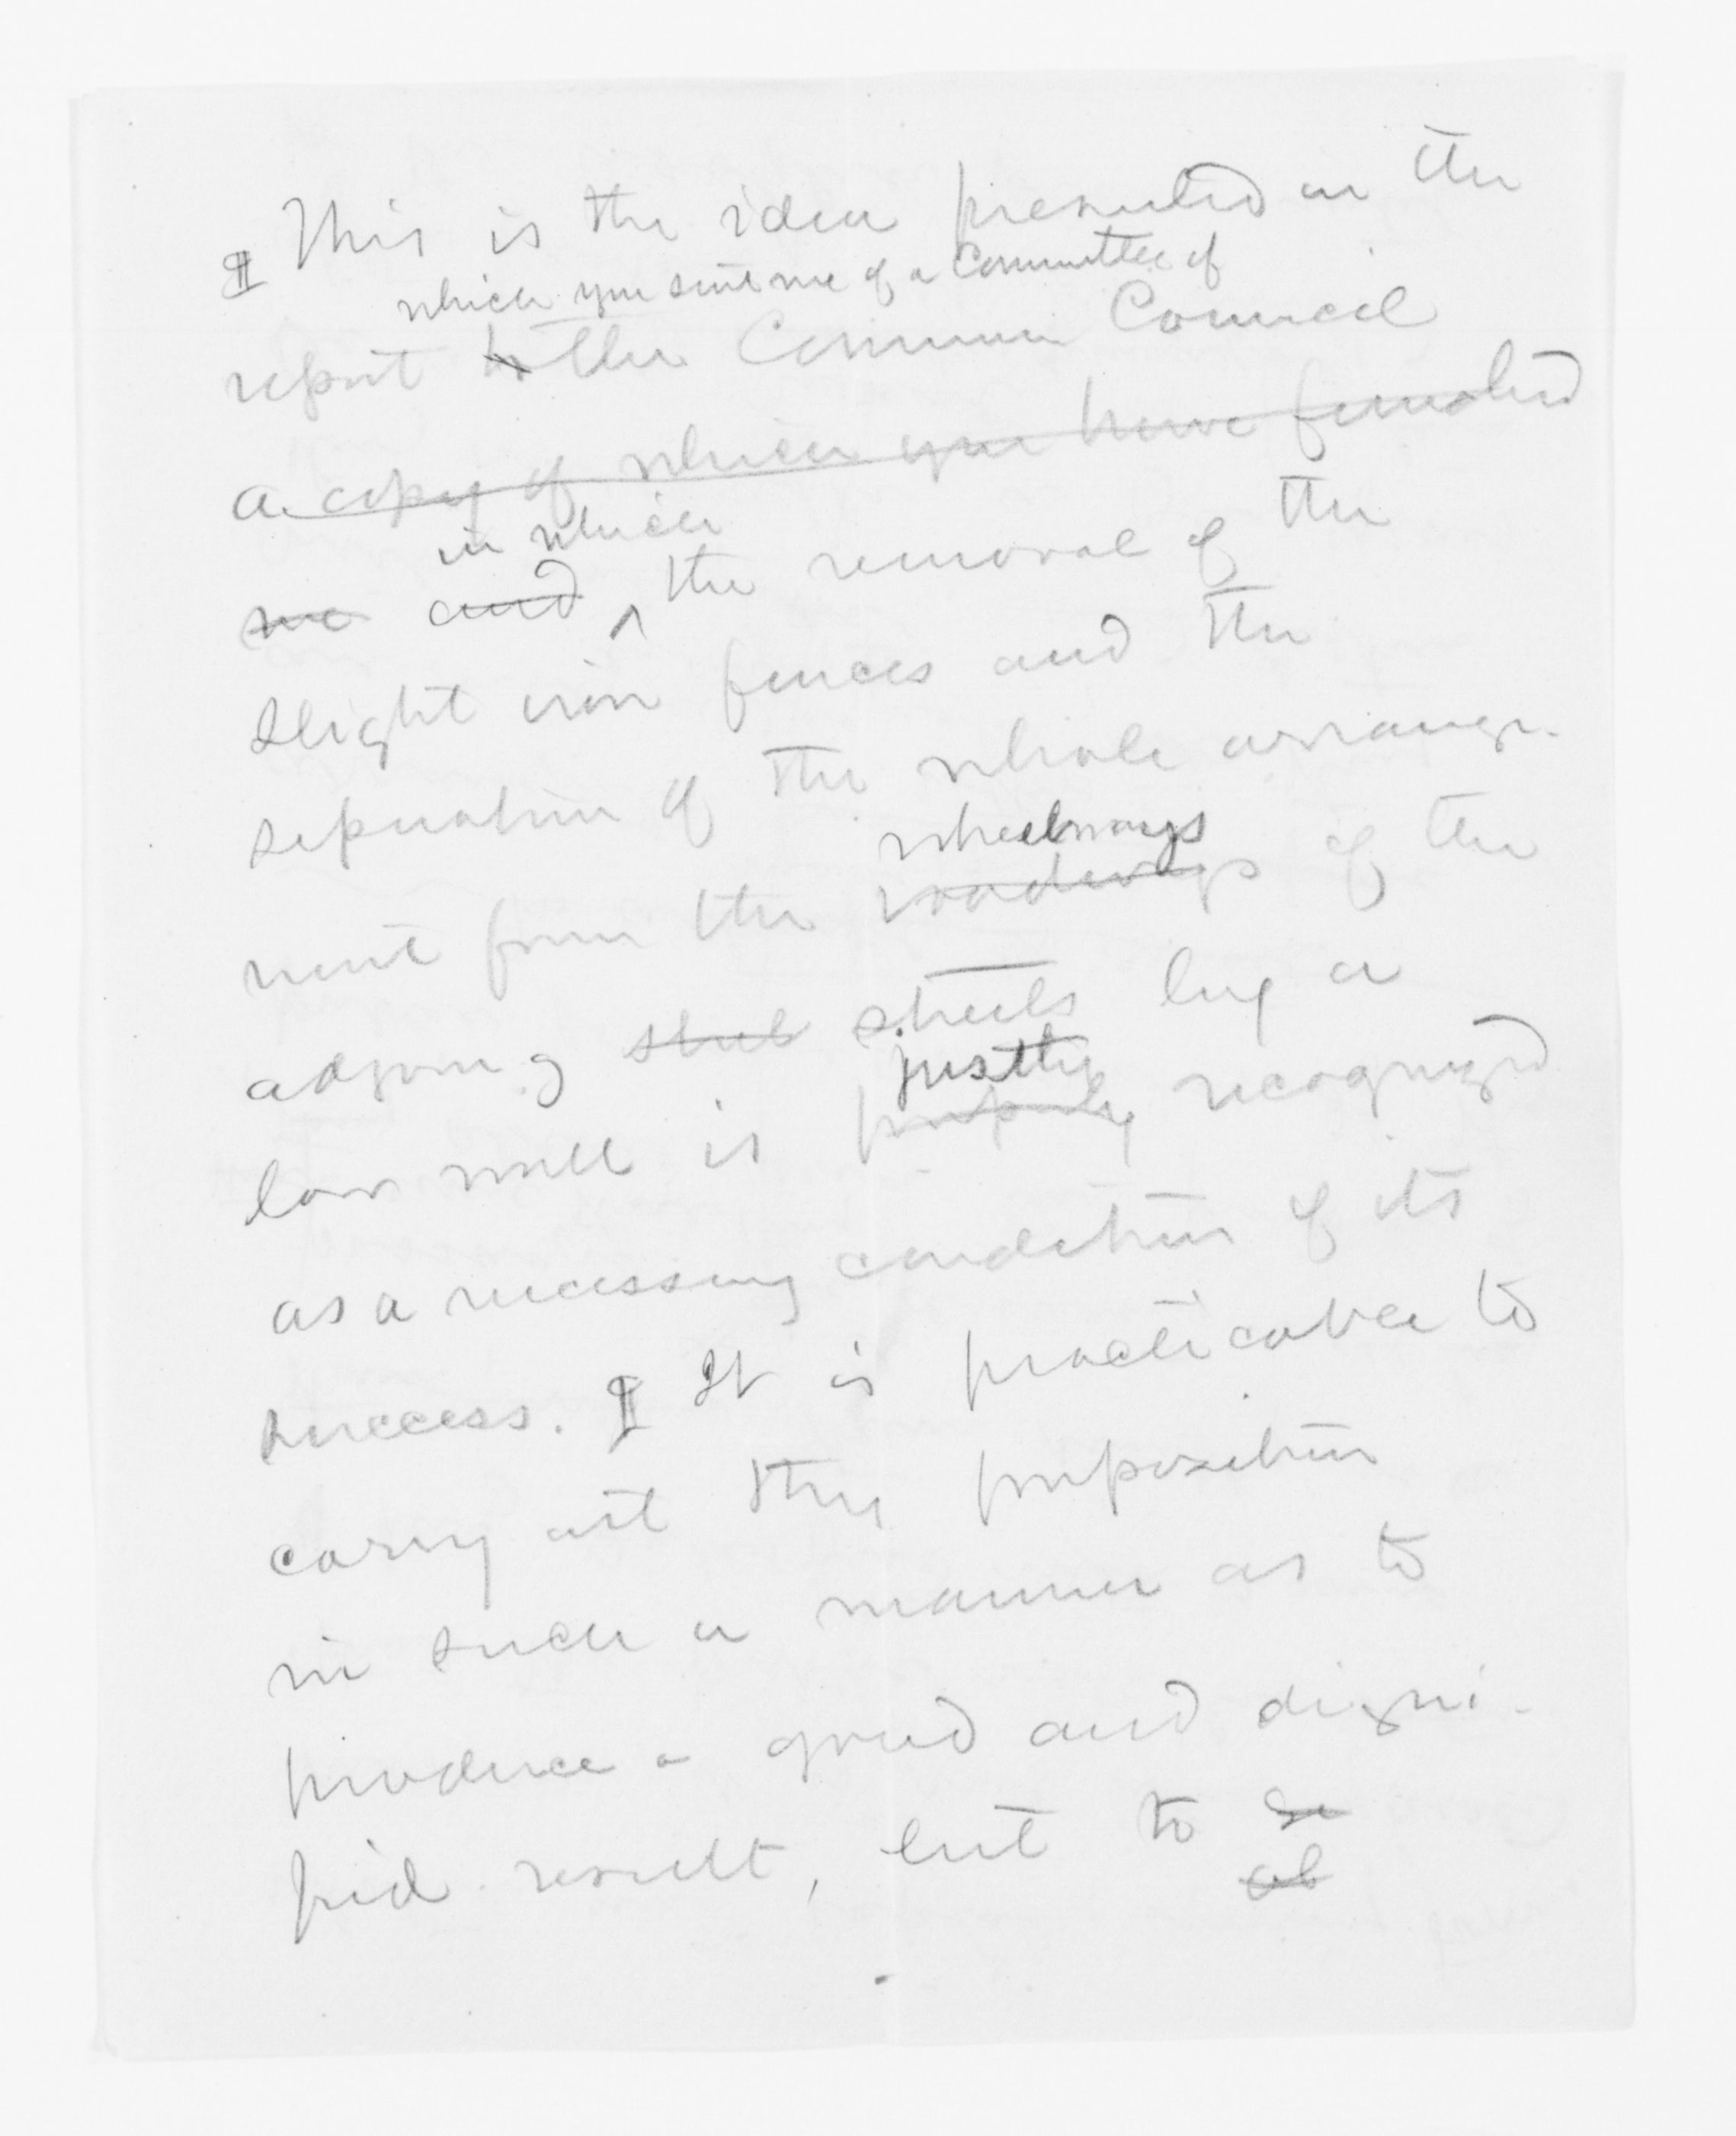 ¶ This is the idea presented in the
which you sent me of a Committee of
report to the Common Council
a copy of which you have furnished
in which
me and ^ the removal of the
slight iron fences and the
separation of the whole arrange-
wheelways
ment from the roadways of the
adjoining streets streets by a
justly
low wall is properly recognized
as a necessary condition of its
success. ¶ It is practicable to
carry out this proposition
in such a manner as to
produce a good and digni-
fied result, but to se
ab